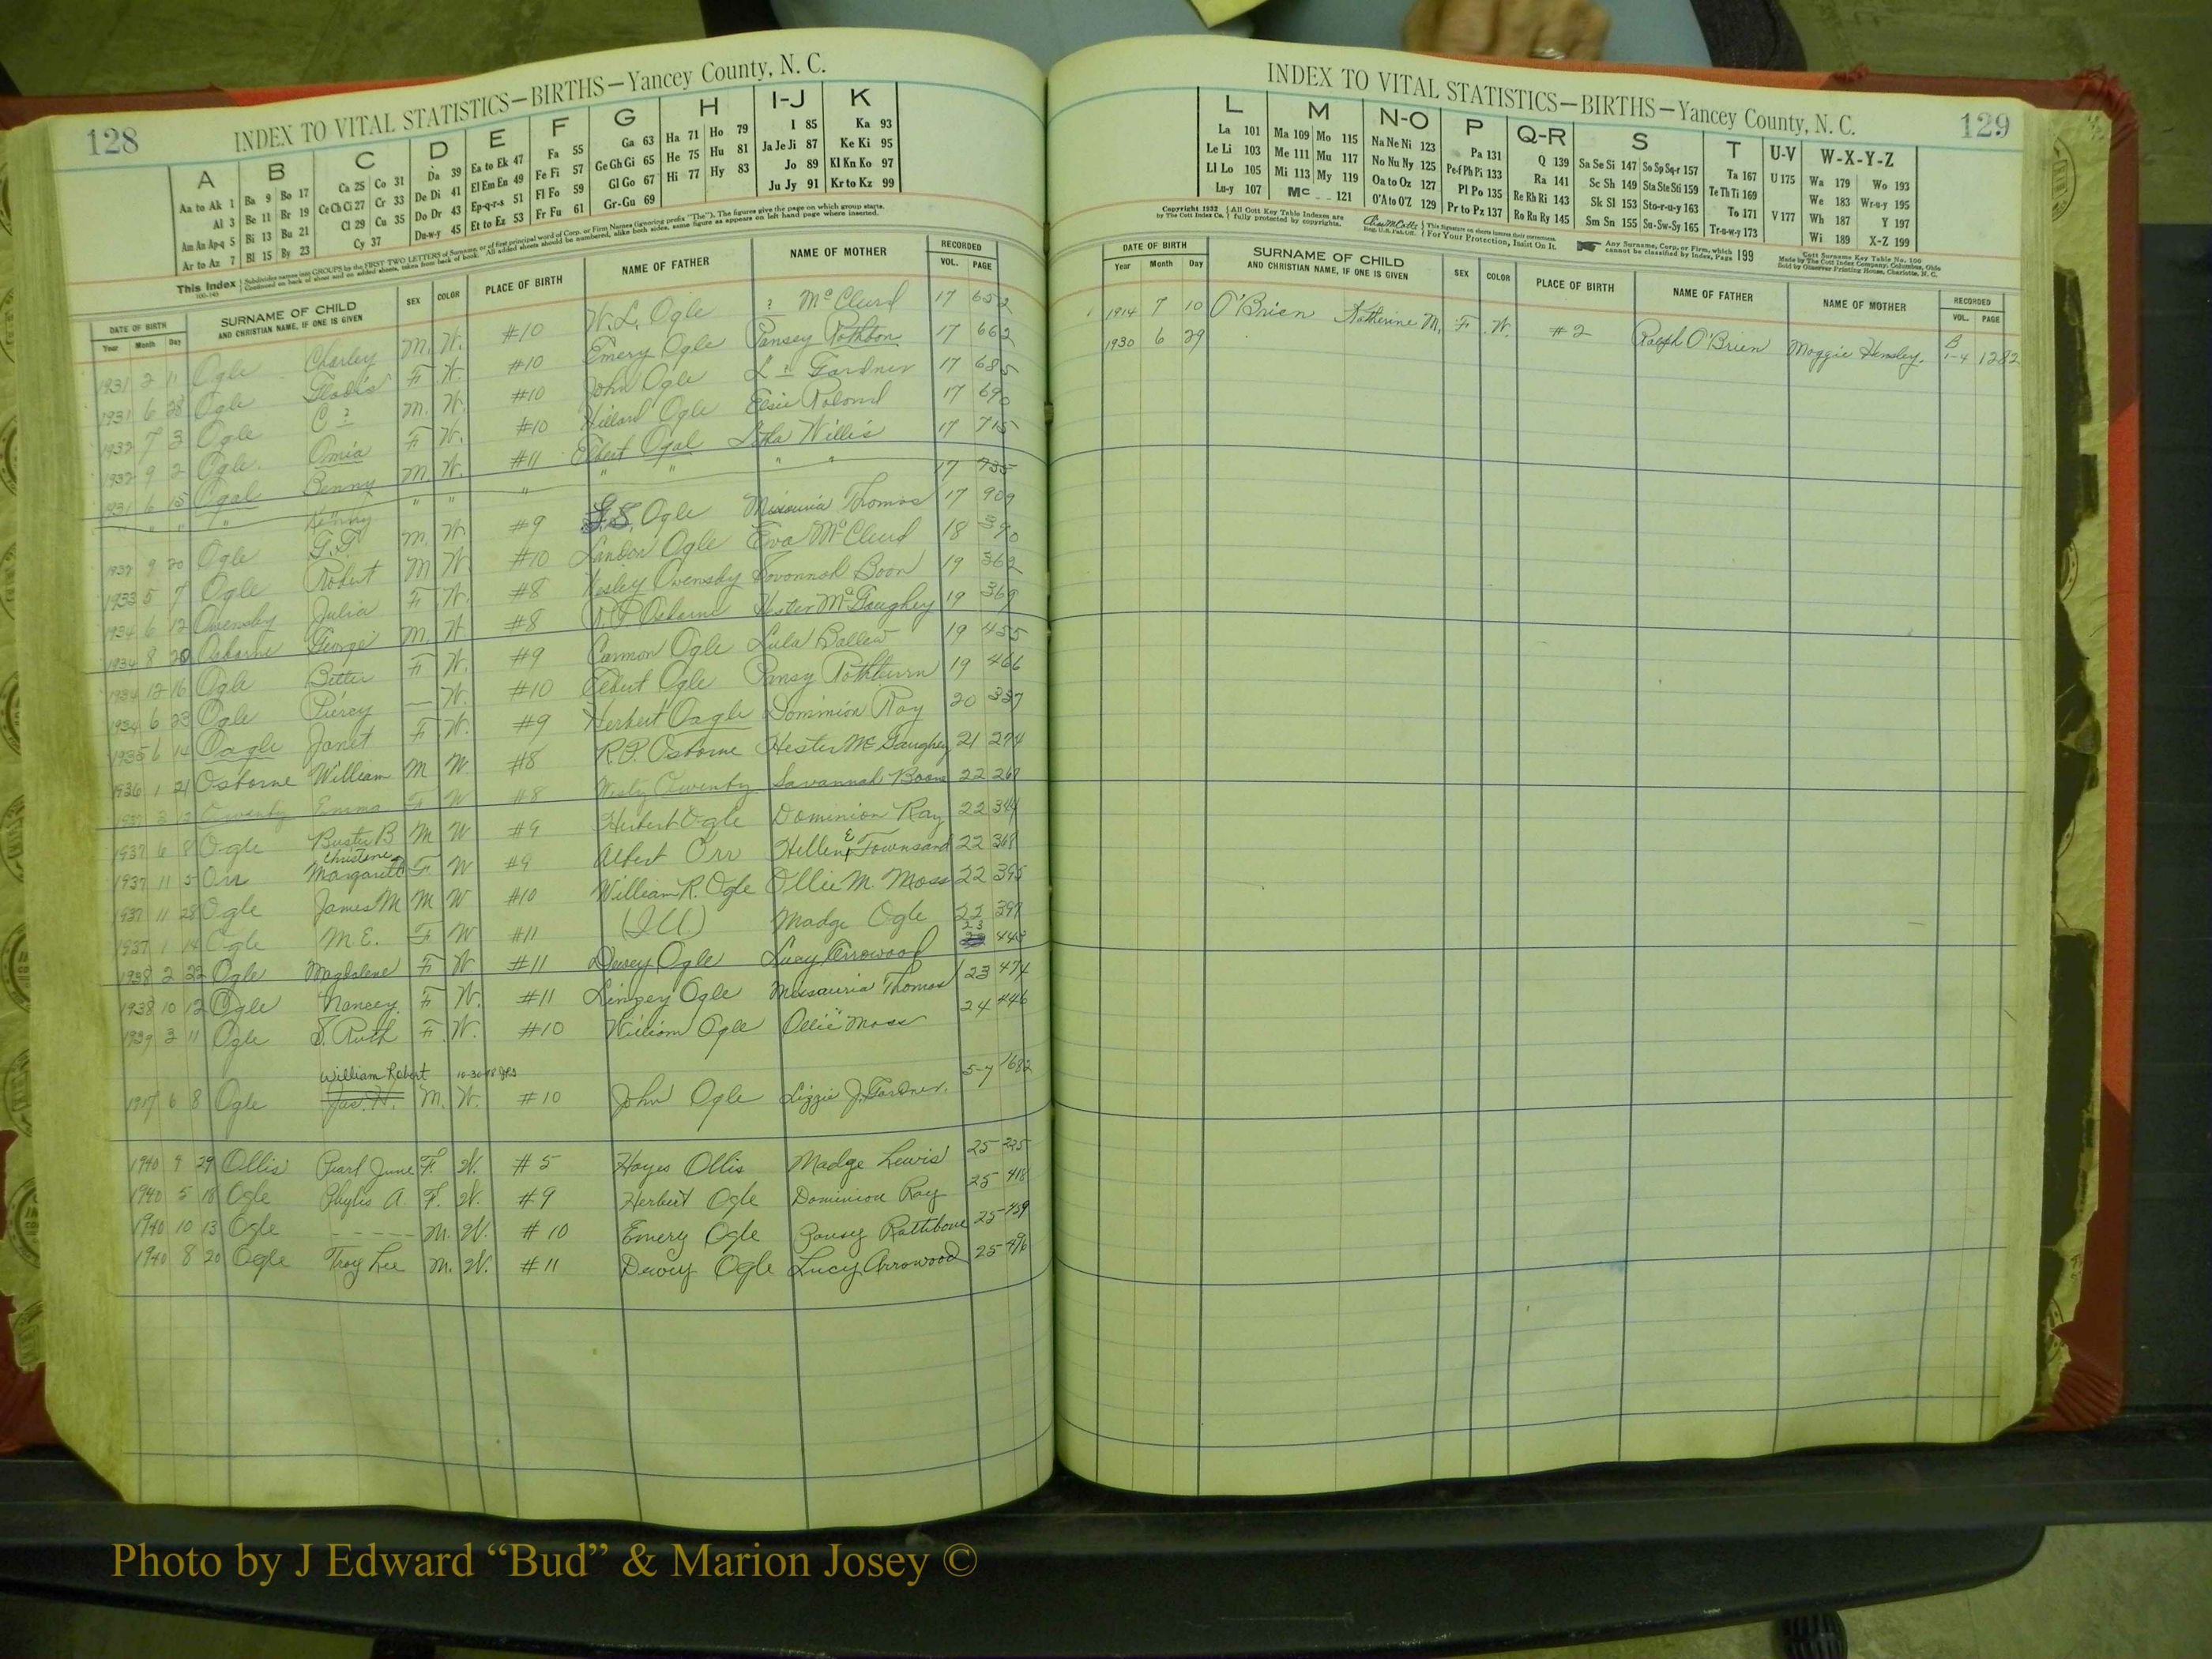 128
INDEX TO VITAL STATISTICS—BIRTHS—Yancey County, N. C.
A B C D E F G H I-J K
Aa to Ak 1 Ba 9 Bo 17 Ca 25 Co 31 Da 39 Ea to Ek 47 Fa 55 Ga 63 Ha 71 Ho 79 I 85 Ka 93
Al 3 Be 11 Br 19 Ce Ch Ci 27 Cr 33 De Di 41 El Em En 49 Fe Fi 57 Ge Gh Gi 65 He 75 Hu 81 Ja Je Ji 87 Ke Ki 95
Am An Ap-q 5 Bi 13 Bu 21 Cl 29 Cu 35 Do Dr 43 Ep-q-r-s 51 Fl Fo 59 Gl Go 67 Hi 77 Hy 83 Jo 89 Kl Kn Ko 97
Ar to Az 7 Bl 15 By 23 Cy 37 Du-w-y 45 Et to Ez 53 Fr Fu 61 Gr-Gu 69 Ju Jy 91 Kr to Kz 99
This Index Subdivides names into GROUPS by the FIRST TWO LETTERS of Surname, or of first principal word of Corp. or Firm Names (ignoring prefix "The"). The figures give the page on which group starts.
Continued on back of sheet and on added sheets, taken from back of book. All added sheets should be numbered, alike both sides, same figure as appears on left hand page where inserted.
DATE OF BIRTH SURNAME OF CHILD SEX COLOR PLACE OF BIRTH NAME OF FATHER NAME OF MOTHER RECORDED
Year Month Day AND CHRISTIAN NAME, IF ONE IS GIVEN VOL. PAGE
1931 2 11 Ogle Charley M. W. #10 W. L. Ogle ? McClurd 17 652
1931 6 28 Ogle Gladis F. W. #10 Emery Ogle Pansey Rothbon 17 662
1932 7 3 Ogle C ? M. W. #10 John Ogle L ? Gardner 17 685
1932 9 2 Ogle Omia F. W. #10 Hillard Ogle Elsie 17 690
1931 6 15 Ogal Benny M. W. #11 Elbert Ogal Letha Willis 17 715
" " " " Kenny " " " " " " " 17 735
1932 9 20 Ogle M. W. #9 Ogle Missouria Thomas 17 909
1933 5 7 Ogle Robert M W #10 Landon Ogle Eva McClurd 18 390
1934 6 12 Owensby Julia F. W. #8 Wesley Owensby Sovonnah Boon 19 362
1934 8 20 Osborne George M. W #8 R. P. Osborne Hester McGaughey 19 369
1934 12 16 Ogle Bettie F. W. #9 Carmon Ogle Lula Ballew 19 455
1934 6 23 Ogle Piercy — W. #10 Elbert Ogle Pansy Rothburn 19 466
1935 6 14 Oagle Janet F. W. #9 Herbert Oagle Dominion Ray 20 337
1936 1 21 Osborne William M W. #8 R. P. Osborne Hester McGaughey 21 274
1937 3 2 Owenby Emma F W #8 Wesly Owenby Savannah Boone 22 267
1937 6 8 Ogle Buster B M W #9 Herbert Ogle Dominion Ray 22 344
Christene
1937 11 5 Orr Margarett F W #9 Albert Orr Hellen E Townsand 22 368
1937 11 28 Ogle James M M W #10 William R. Ogle Ollie M. Moss 22 395
1937 1 14 Ogle M. E. F W #11 (Ill) Madge Ogle 22 397
1938 2 22 Ogle Magdalene F W #11 Dewey Ogle Lucy Arrowood 23 443
1938 10 12 Ogle Nancey F W. #11 Linzey Ogle Missauria Thomas 23 474
1939 3 11 Ogle S. Ruth F. W. #10 William Ogle Ollie Moss 24 446
William Robert
1917 6 8 Ogle Jas. H. M. W. #10 John Ogle Lizzie J. Gardner. 5-7 1682
1940 9 29 Ollis Pearl June F. W. #5 Hayes Ollis Madge Lewis 25 225
1940 5 18 Ogle Phylis A F. W. #9 Herbert Ogle Dominion Ray 25 418
1940 10 13 Ogle ----- M. W. #10 Emery Ogle Pansy Rattibone 25 459
1940 8 20 Ogle Troy Lee M. W. #11 Dewey Ogle Lucy Arrowood 25 496
INDEX TO VITAL STATISTICS—BIRTHS—Yancey County, N. C.
129
L M N-O P Q-R S T U-V W-X-Y-Z
La 101 Ma 109 Mo 115 Na Ne Ni 123 Pa 131 Q 139 Sa Se Si 147 So Sp Sq-r 157 Ta 167 U 175 Wa 179 Wo 193
Le Li 103 Me 111 Mu 117 No Nu Ny 125 Pe-f Ph Pi 133 Ra 141 Sc Sh 149 Sta Ste Sti 159 Te Th Ti 169 We 183 Wr-u-y 195
Ll Lo 105 Mi 113 My 119 Oa to Oz 127 Pl Po 135 Re Rh Ri 143 Sk Sl 153 Sto-r-u-y 163 To 171 V 177 Wh 187 Y 197
Lu-y 107 Mc 121 O'A to O'Z 129 Pr to Pz 137 Ro Ru Ry 145 Sm Sn 155 Su-Sw-Sy 165 Tr-u-w-y 173 Wi 189 X-Z 199
Copyright 1932 by The Cott Index Co. All Cott Key Table Indexes are fully protected by copyrights. This Signature on sheets insures their correctness. For Your Protection, Insist On It. Any Surname, Corp. or Firm, which cannot be classified by Index, Page 199 Cott Surname Key Table No. 100
Made by The Cott Index Company, Columbus, Ohio
Sold by Observer Printing House, Charlotte, N. C.
DATE OF BIRTH SURNAME OF CHILD SEX COLOR PLACE OF BIRTH NAME OF FATHER NAME OF MOTHER RECORDED
Year Month Day AND CHRISTIAN NAME, IF ONE IS GIVEN VOL. PAGE
1914 7 10 O'Brien Katherine M. F. W. #2 Ralph O'Brien Maggie Hensley. B 1-4 1282
1930 6 29
Photo by J Edward “Bud” & Marion Josey ©